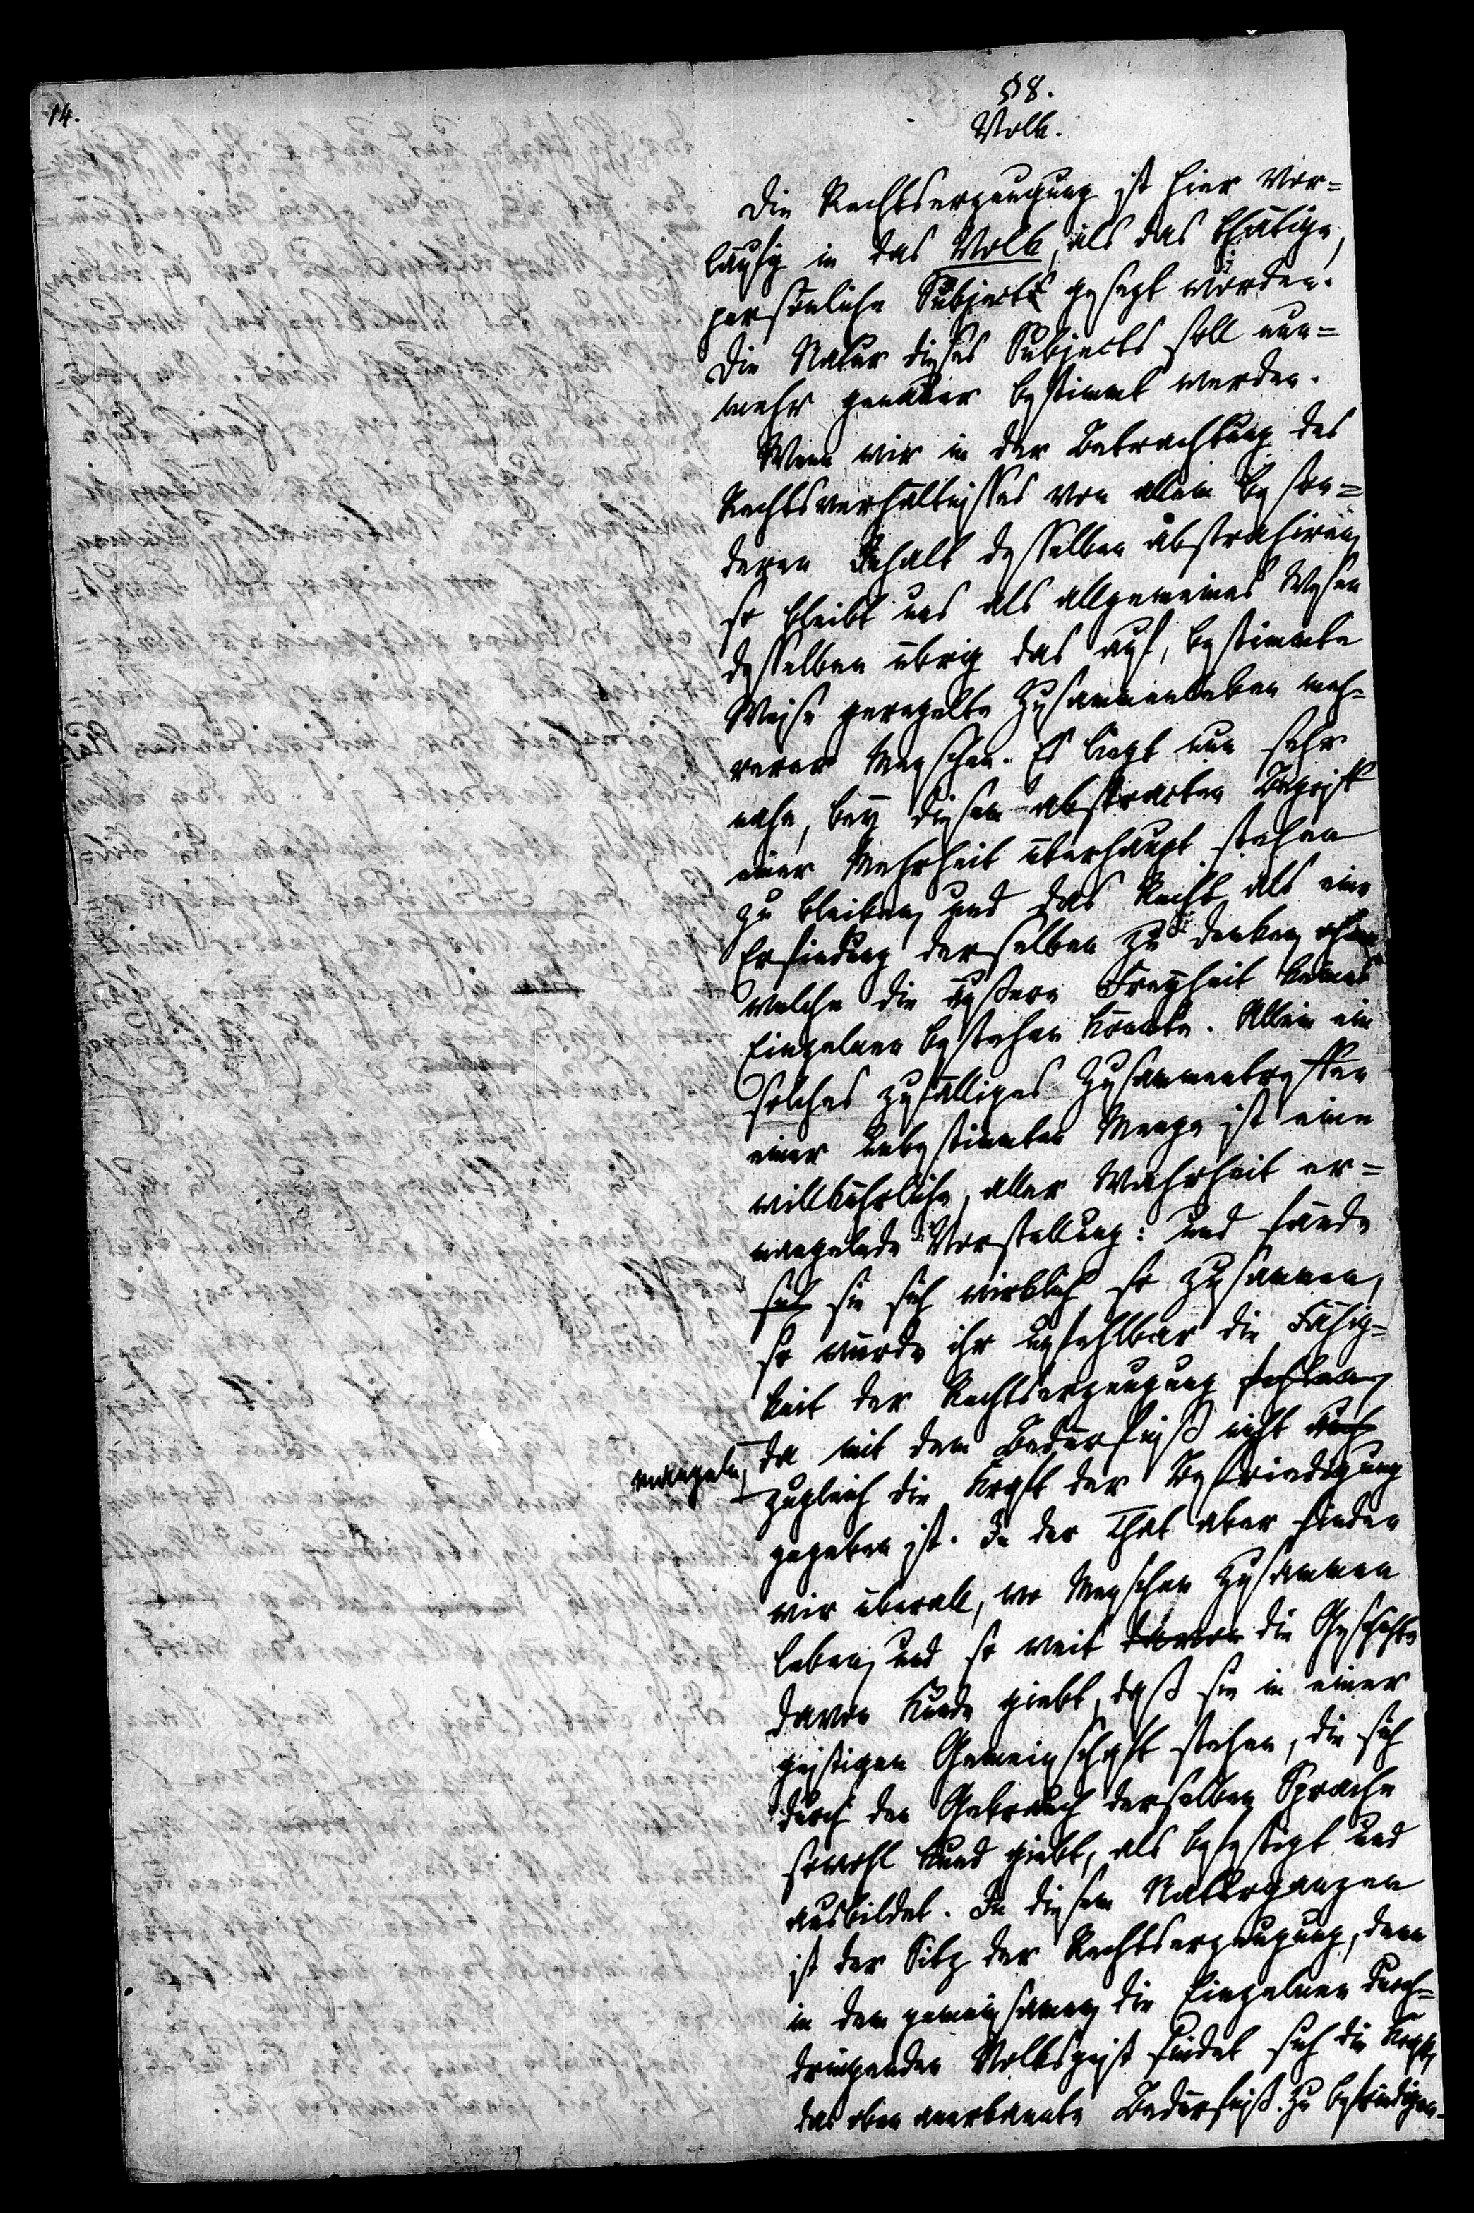 14.
§ 8.
Volk.
Die Rechtserzeugung ist hier vor=
läufig in das Volk, als das thätige,
persönliche Subject gesetzt worden.
Die Natur dieses Subjects soll nun=
mehr genauer bestimmt werden.
Wenn wir in der Betrachtung des
Rechtsverhältnisses von allem beson=
deren Inhalt desselben abstrahiren,
so bleibt uns als allgemeines Wesen
desselben übrig das auf bestimmte
Weise geregelte Zusammenleben meh=
rerer Menschen. Es liegt nun sehr
nahe, bey diesem abstracten Begriff
einer Mehrheit überhaupt stehen
zu bleiben, und das Recht als eine
Erfindung derselben zu denken, ohne
welche die äußere Freyheit keines
Einzelnen bestehen könnte. Allein ein
solches zufälliges Zusammentreffen
einer unbestimmten Menge ist eine
willkührliche, aller Wahrheit er=
mangelnde Vorstellung: und fände
sie sich wirklich so zusammen,
so würde ihr unfehlbar die Fähig=
keit der Rechtserzeugung fehlen,
mangeln,
da mit dem Bedürfniß nicht auch
zugleich die Kraft der Befriedigung
gegeben ist. In der That aber finden
wir überall, wo Menschen zusammen
leben, und so weit davon die Geschichte
davon Kunde giebt, daß sie in einer
geistigen Gemeinschaft stehen, die sich
durch den Gebrauch derselben Sprache
sowohl kund giebt, als befestigt und
ausbildet. In diesem Naturganzen
ist der Sitz der Rechtserzeugung, denn
in dem gemeinsamen, die Einzelnen durch=
dringenden Volksgeist findet sich die Kraft,
das oben anerkannte Bedürfniß zu befriedigen.